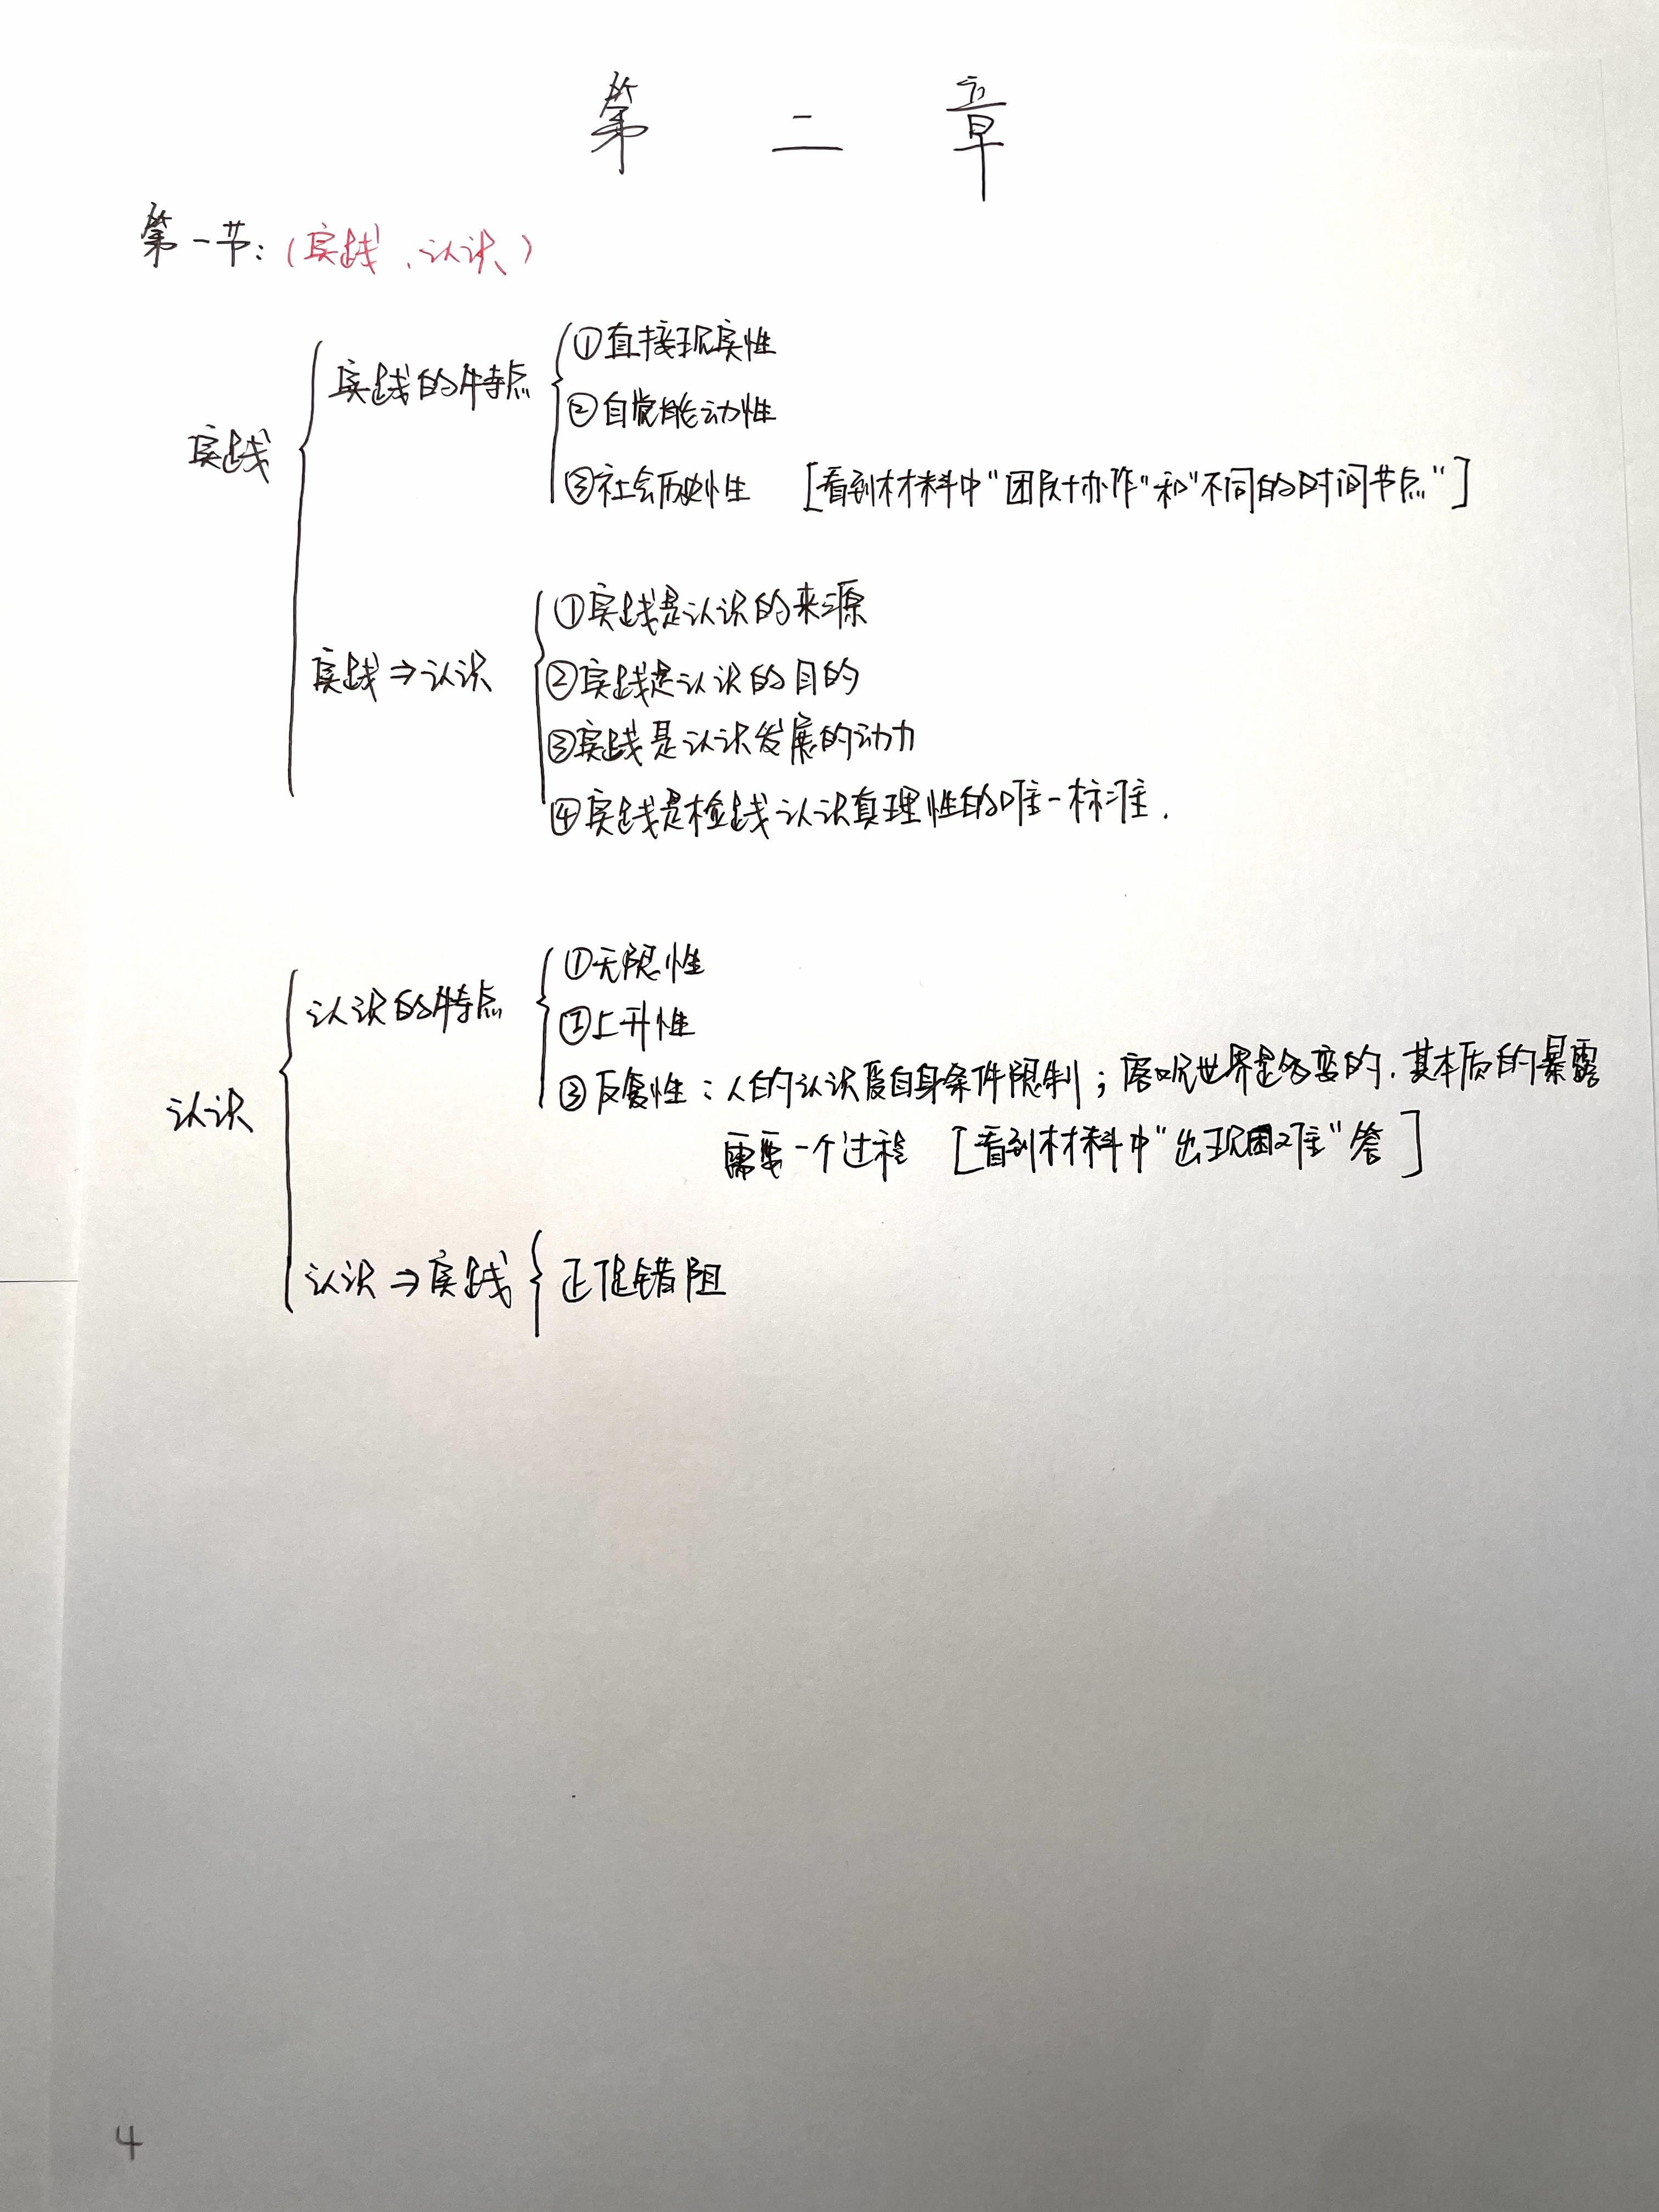 第 二 章
第一节：（实践、认识）
实践的特点
①直接现实性
②自觉能动性
实践
③社会历史性 [看到材料中“团队协作”和“不同的时间节点”]
①实践是认识的来源
实践⇒认识
②实践是认识的目的
③实践是认识发展的动力
④实践是检践认识真理性的唯一标准.
认识的特点
①无限性
②上升性
认识
③反复性：人的认识受自身条件限制；客观世界是多变的.其本质的暴露
需要一个过程 [看到材料中“出现困难”答]
认识⇒实践 正促错阻
4